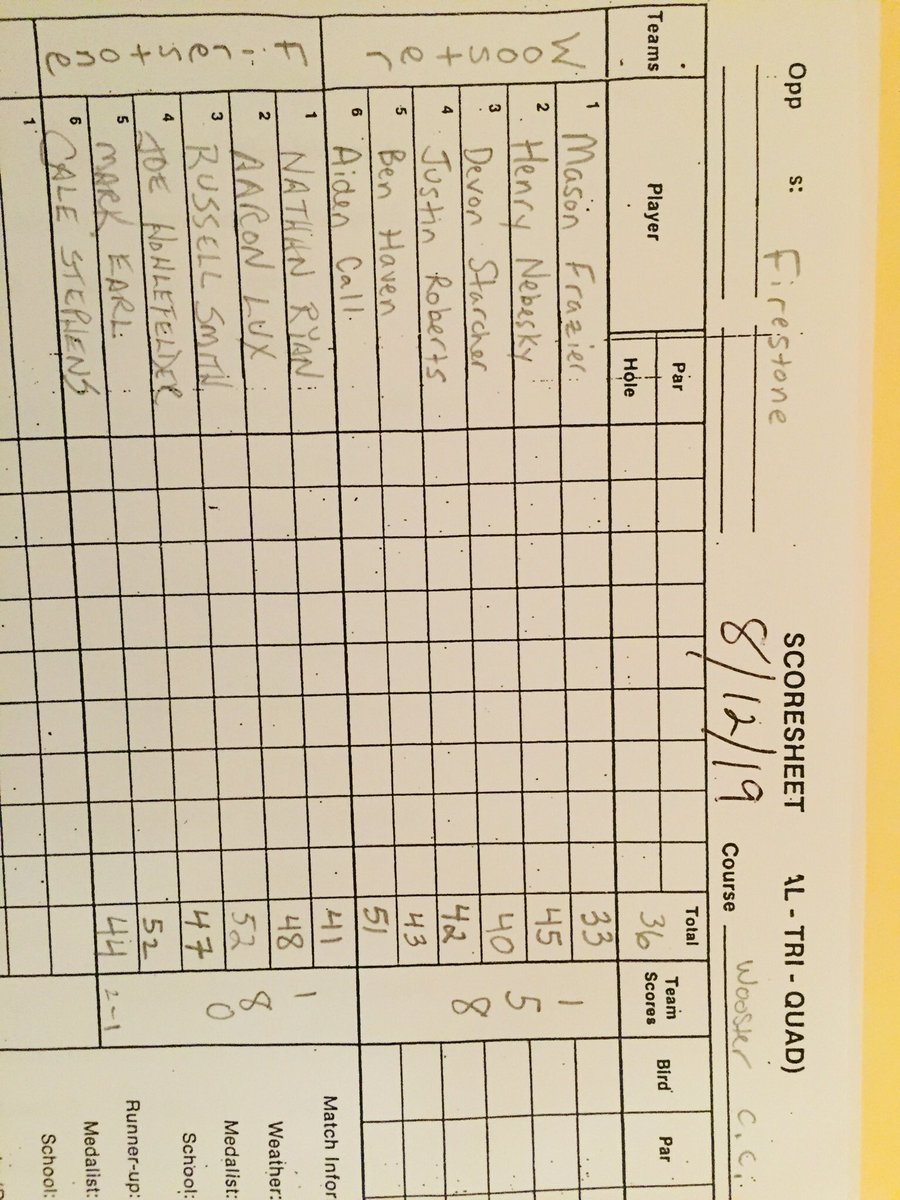 SCORESHEET AL - TRI - QUAD)
Opp s: Firestone
8/12/19 Course Wooster C.C.
Teams Player Par Total Team Scores Bird Par
Hole 36
Wooster
1 Mason Frazier 33
2 Henry Nebesky 45
3 Devon Starcher 40
4 Justin Roberts 42
5 Ben Haven 43
6 Aiden Call 51
158
Firestone
1 NATHAN RYAN 41
2 AARON LUX 48
3 RUSSELL SMITH 52
4 JOE 47
5 MARK EARL 52
6 CALE STEPHENS 44
180
2-1
1
Match Infor
Weather:
Medalist:
School:
Runner-up:
Medalist:
School: